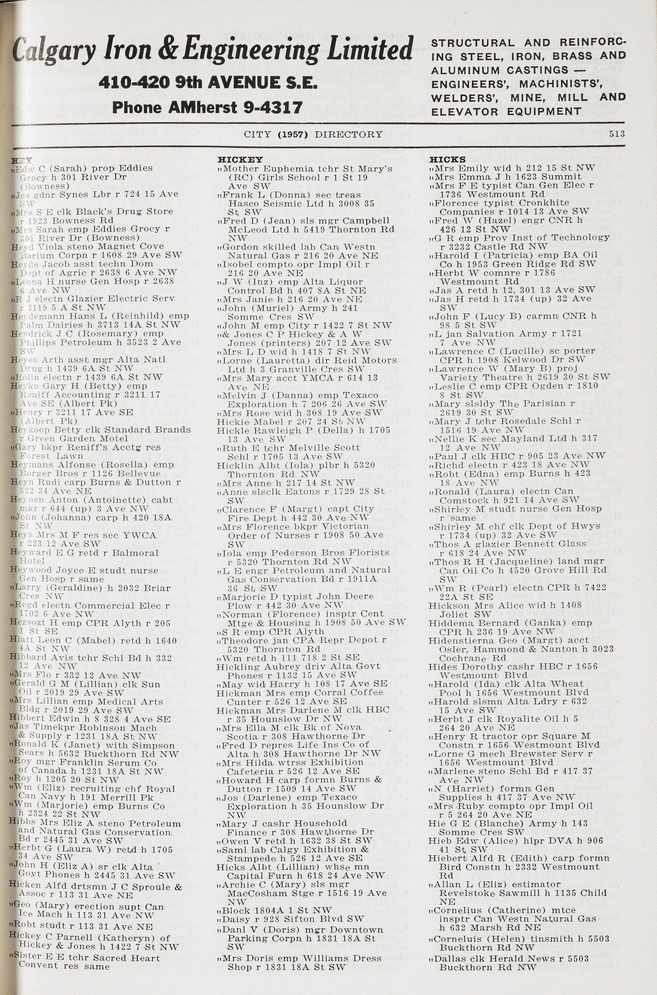 Calgary Iron & Engineering Limited
410-420 9th AVENUE S.E.
Phone AMherst 9-4317
STRUCTURAL AND REINFORC-
ING STEEL, IRON, BRASS AND
ALUMINUM CASTINGS —
ENGINEERS', MACHINISTS',
WELDERS', MINE, MILL AND
ELEVATOR EQUIPMENT
CITY (1957) DIRECTORY
513
HEY
"Edw C (Sarah) prop Eddies
Grocy h 301 River Dr
(Bowness)
"Jas gdnr Synes Lbr r 724 15 Ave
SW
"Mrs S E clk Black's Drug Store
r 1923 Bowness Rd
"Mrs Sarah emp Eddies Grocy r
301 River Dr (Bowness)
Heyd Viola steno Magnet Cove
Barium Corpn r 1608 29 Ave SW
Heyde Jacob asst techn Dom
Dept of Agric r 2638 6 Ave NW
"Leona H nurse Gen Hosp r 2638
6 Ave NW
"R J electn Glazier Electric Serv
r 3119 5 A St NW
Heydemann Hans L (Reinhild) emp
Palm Dairies h 3713 14A St NW
Heydrick J C (Rosemary) emp
Phillips Petroleum h 3523 2 Ave
SW
Heyes Arth asst mgr Alta Natl
Drug h 1439 6A St NW
"Rolin electn r 1439 6A St NW
Heyko Gary H (Betty) emp
Reniff Accounting r 3211 17
Ave SE (Albert Pk)
"Henry r 3211 17 Ave SE
(Albert Pk)
Heykoop Betty clk Standard Brands
r Green Garden Motel
"Gary bkpr Reniff's Acctg res
Forest Lawn
Heymans Alfonse (Rosella) emp
Borger Bros r 1126 Bellevue
Heyn Rudi carp Burns & Dutton r
332 34 Ave NE
Heynen Anton (Antoinette) cabt
mkr r 644 (up) 3 Ave NW
"John (Johanna) carp h 420 18A
St NW
Heys Mrs M F res sec YWCA
r 223 12 Ave SW
Heyward E G retd r Balmoral
Hotel
Heywood Joyce E studt nurse
Gen Hosp r same
"Larry (Geraldine) h 2032 Briar
Cres NW
"Regd electn Commercial Elec r
1702 6 Ave NW
Hezsozt H emp CPR Alyth r 205
1 St SE
Hiatt Leon C (Mabel) retd h 1640
4A St NW
Hibbard Avis tchr Schl Bd h 332
12 Ave NW
"Mrs Flo r 332 12 Ave NW
"Gerald G M (Lillian) clk Sun
Oil r 2019 29 Ave SW
"Mrs Lillian emp Medical Arts
Bldg r 2019 29 Ave SW
Hibbert Edwin h 8 328 4 Ave SE
"Jas Timekpr Robinson Mach
& Supply r 1231 18A St NW
"Ronald K (Janet) with Simpson
Sears h 5632 Buckthorn Rd NW
"Roy mgr Franklin Serum Co
of Canada h 1231 18A St NW
"Roy h 1205 20 St NW
"Wm (Eliz) recruiting chf Royal
Can Navy h 191 Merrill Pk
"Wm (Marjorie) emp Burns Co
h 2324 22 St NW
Hibbs Mrs Eliz A steno Petroleum
and Natural Gas Conservation
Bd r 2445 31 Ave SW
"Herbt G (Laura W) retd h 1705
34 Ave SW
"John H (Eliz A) sr clk Alta
Govt Phones h 2445 31 Ave SW
Hicken Alfd drtsmn J C Sproule &
Assoc r 113 31 Ave NE
"Geo (Mary) erection supt Can
Ice Mach h 113 31 Ave NW
"Robt studt r 113 31 Ave NE
Hickey C Parnell (Katheryn) of
Hickey & Jones h 1422 7 St NW
"Sister E E tchr Sacred Heart
Convent res same
HICKEY
"Mother Euphemia tchr St Mary's
(RC) Girls School r 1 St 19
Ave SW
"Frank L (Donna) sec treas
Hasco Seismic Ltd h 3008 35
St SW
"Fred D (Jean) sls mgr Campbell
McLeod Ltd h 5419 Thornton Rd
NW
"Gordon skilled lab Can Westn
Natural Gas r 216 20 Ave NE
"Isobel compto opr Impl Oil r
216 20 Ave NE
"J W (Inz) emp Alta Liquor
Control Bd h 407 8A St NE
"Mrs Janie h 216 20 Ave NE
"John (Muriel) Army h 241
Somme Cres SW
"John M emp City r 1422 7 St NW
& Jones C P Hickey & A W
Jones (printers) 207 12 Ave SW
"Mrs L D wid h 1418 7 St NW
"Lorne (Lauretta) dir Reid Motors
Ltd h 3 Granville Cres SW
"Mrs Mary acct YMCA r 614 13
Ave NE
"Melvin J (Danna) emp Texaco
Exploration h 7 206 26 Ave SW
"Mrs Rose wid h 308 19 Ave SW
Hickie Mabel r 207 24 St NW
Hickle Rawleigh P (Della) h 1705
13 Ave SW
"Ruth E tchr Melville Scott
Schl r 1705 13 Ave SW
Hicklin Albt (Iola) plbr h 5320
Thornton Rd NW
"Mrs Anne h 217 14 St NW
"Anne slsclk Eatons r 1729 28 St
SW
"Clarence F (Margt) capt City
Fire Dept h 442 30 Ave NW
"Mrs Florence bkpr Victorian
Order of Nurses r 1908 50 Ave
SW
"Iola emp Pederson Bros Florists
r 5320 Thornton Rd NW
"L E engr Petroleum and Natural
Gas Conservation Bd r 1911A
36 St SW
"Marjorie D typist John Deere
Plow r 442 30 Ave NW
"Norman (Florence) insptr Cent
Mtge & Housing h 1908 50 Ave SW
"S R emp CPR Alyth
"Theodore jan CPA Repr Depot r
5320 Thornton Rd
"Wm retd h 111 718 2 St SE
Hickling Aubrey driv Alta Govt
Phones r 1132 15 Ave SW
"May wid Harry h 108 17 Ave SE
Hickman Mrs emp Corral Coffee
Cunter r 526 12 Ave SE
Hickman Mrs Darlene M clk HBC
r 35 Hounslow Dr NW
"Mrs Ella M clk Bk of Nova
Scotia r 308 Hawthorne Dr
"Fred D repres Life Ins Co of
Alta h 308 Hawthorne Dr NW
"Mrs Hilda wtrss Exhibition
Cafeteria r 526 12 Ave SE
"Howard H carp formn Burns &
Dutton r 1509 14 Ave SW
"Jos (Darlene) emp Texaco
Exploration h 35 Hounslow Dr
NW
"Mary J cashr Household
Finance r 308 Hawthorne Dr
"Owen V retd h 1632 38 St SW
"Saml lab Calgy Exhibition &
Stampede h 526 12 Ave SE
Hicks Albt (Lillian) whse mn
Capital Furn h 618 24 Ave NW
"Archie C (Mary) sls mgr
MacCosham Stge r 1516 19 Ave
NW
"Block 1804A 1 St NW
"Daisy r 928 Sifton Blvd SW
"Danl V (Doris) mgr Downtown
Parking Corpn h 1831 18A St
SW
"Mrs Doris emp Williams Dress
Shop r 1831 18A St SW
HICKS
"Mrs Emily wid h 212 15 St NW
"Mrs Emma J h 1623 Summit
"Mrs F E typist Can Gen Elec r
1736 Westmount Rd
"Florence typist Cronkhite
Companies r 1014 13 Ave SW
"Fred W (Hazel) engr CNR h
426 12 St NW
"G R emp Prov Inst of Technology
r 3232 Castle Rd NW
"Harold I (Patricia) emp BA Oil
Co h 1953 Green Ridge Rd SW
"Herbt W comnre r 1786
Westmount Rd
"Jas A retd h 12, 301 13 Ave SW
"Jas H retd h 1734 (up) 32 Ave
SW
"John F (Lucy B) carmn CNR h
98 5 St SW
"L jan Salvation Army r 1721
7 Ave NW
"Lawrence C (Lucille) sc porter
CPR h 1908 Kelwood Dr SW
"Lawrence W (Mary B) proj
Variety Theatre h 2619 30 St SW
"Leslie C emp CPR Ogden r 1810
8 St SW
"Mary slsldy The Parisian r
2619 30 St SW
"Mary J tchr Rosedale Schl r
1516 19 Ave NW
"Nellie K sec Mayland Ltd h 317
12 Ave NW
"Paul J clk HBC r 905 23 Ave NW
"Richd electn r 423 18 Ave NW
"Robt (Edna) emp Burns h 423
18 Ave NW
"Ronald (Laura) electn Can
Comstock h 921 14 Ave SW
"Shirley M studt nurse Gen Hosp
r same
"Shirley M chf clk Dept of Hwys
r 1734 (up) 32 Ave SW
"Thos A glazier Bennett Glass
r 618 24 Ave NW
"Thos R H (Jacqueline) land mgr
Can Oil Co h 4520 Grove Hill Rd
SW
"Wm R (Pearl) electn CPR h 7422
22A St SE
Hickson Mrs Alice wid h 1408
Joliet SW
Hiddema Bernard (Ganka) emp
CPR h 236 19 Ave NW
Hidenstierna Geo (Margt) acct
Osler, Hammond & Nanton h 3023
Cochrane Rd
Hides Dorothy cashr HBC r 1656
Westmount Blvd
"Harold (Ida) clk Alta Wheat
Pool h 1656 Westmount Blvd
"Harold slsmn Alta Ldry r 632
15 Ave SW
"Herbt J clk Royalite Oil h 5
264 20 Ave NE
"Henry R tractor opr Square M
Constn r 1656 Westmount Blvd
"Lorne G mech Brewster Serv r
1656 Westmount Blvd
"Marlene steno Schl Bd r 417 37
Ave NW
"N (Harriet) formn Gen
Supplies h 417 37 Ave NW
"Mrs Ruby compto opr Impl Oil
r 5 264 20 Ave NE
Hie G E (Blanche) Army h 143
Somme Cres SW
Hieb Edw (Alice) hlpr DVA h 906
41 St SW
Hiebert Alfd R (Edith) carp formn
Bird Constn h 2332 Westmount
Rd
"Allan L (Eliz) estimator
Revelstoke Sawmill h 1135 Child
NE
"Cornelius (Catherine) mtce
insptr Can Westn Natural Gas
h 632 Marsh Rd NE
"Corneluis (Helen) tinsmith h 5503
Buckthorn Rd NW
"Dallas clk Herald News r 5503
Buckthorn Rd NW